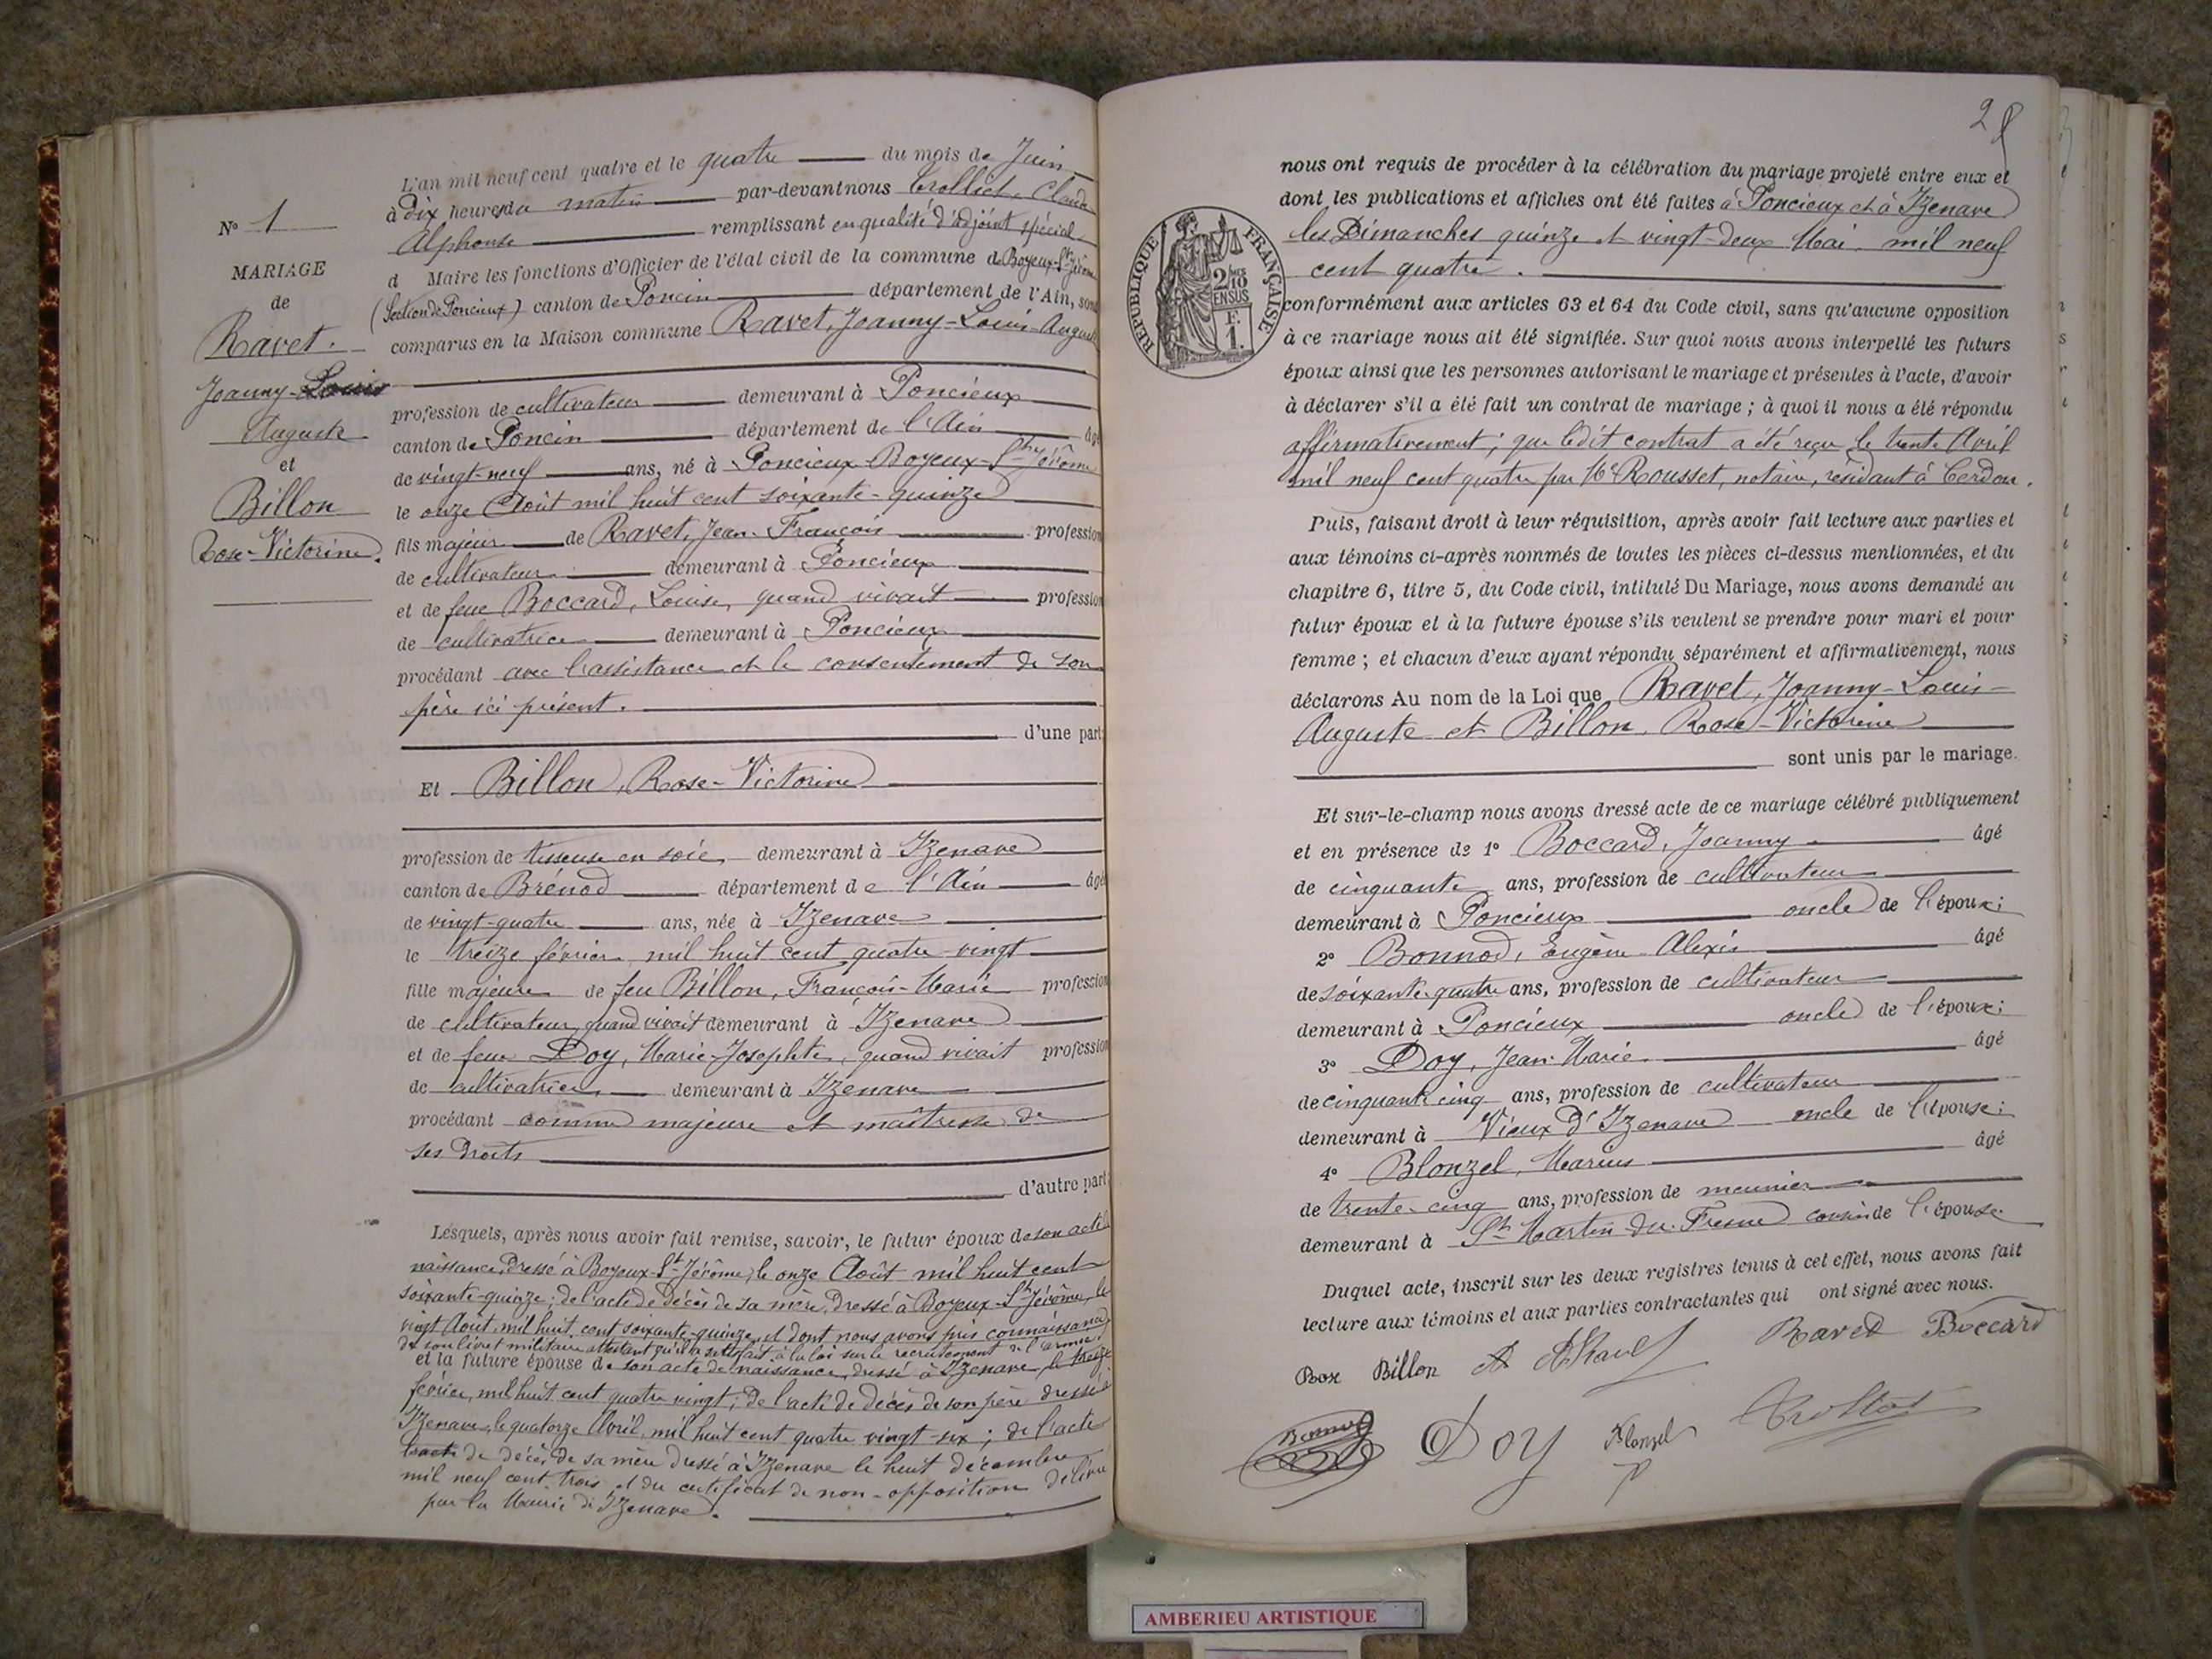 N° 1
MARIAGE
de
Ravet.
Joanny-Louis
Auguste
et
Billon
Rose-Victorine.
L'an mil neuf cent quatre et le quatre du mois de Juin
à Dix heures du matin par-devant nous Crollet, Claude
Alphonse remplissant en qualité d'adjoint spécial
d Maire les fonctions d'Officier de l'état civil de la commune de Boyeux-St-Jérôme
(Section de Poncieux) canton de Poncin département de l'Ain, sont
comparus en la Maison commune Ravet, Joanny-Louis-Auguste
profession de cultivateur demeurant à Poncieux
canton de Poncin département de l'Ain âgé
de vingt-neuf ans, né à Poncieux-Boyeux-St-Jérôme
le onze Août mil huit cent soixante-quinze
fils majeur de Ravet, Jean-François profession
de cultivateur demeurant à Poncieux
et de feue Boccard, Louise, quand vivait profession
de cultivatrice demeurant à Poncieux
procédant avec l'assistance et le consentement de son
père ici présent.
d'une part;
Et Billon, Rose-Victorine
profession de tisseuse en soie, demeurant à Izenave
canton de Brénod département de l'Ain âgé
de vingt-quatre ans, née à Izenave
le treize février mil huit cent quatre-vingt
fille majeure de feu Billon, François-Marie profession
de cultivateur, quand vivait demeurant à Izenave
et de feue Doy, Marie-Josephte, quand vivait profession
de cultivatrice demeurant à Izenave
procédant comme majeure et maîtresse de
ses droits
d'autre part;
Lesquels, après nous avoir fait remise, savoir, le futur époux de son acte de
naissance, dressé à Boyeux-St-Jérôme, le onze Août mil huit cent
soixante-quinze; de l'acte de décès de sa mère, dressé à Boyeux-St-Jérôme, le
vingt Août mil huit cent soixante-quinze, et dont nous avons pris connaissance
de son livret militaire attestant qu'il a satisfait à la loi sur le recrutement de l'armée
et la future épouse de son acte de naissance, dressé à Izenave, le treize
février, mil huit cent quatre vingt; de l'acte de décès de son père dressé à
Izenave, le quatorze Avril mil huit cent quatre vingt-six; de l'acte
de décès de sa mère dressé à Izenave le huit décembre
mil neuf cent trois, et du certificat de non-opposition délivré
par la Mairie d'Izenave.
2
nous ont requis de procéder à la célébration du mariage projeté entre eux et
dont les publications et affiches ont été faites à Poncieux et à Izenave
les Dimanches quinze et vingt-deux Mai mil neuf
cent quatre.
conformément aux articles 63 et 64 du Code civil, sans qu'aucune opposition
à ce mariage nous ait été signifiée. Sur quoi nous avons interpellé les futurs
époux ainsi que les personnes autorisant le mariage et présentes à l'acte, d'avoir
à déclarer s'il a été fait un contrat de mariage; à quoi il nous a été répondu
affirmativement; que ledit contrat a été reçu le trente Avril
mil neuf cent quatre par Me Rousset, notaire, résidant à Cerdon.
Puis, faisant droit à leur réquisition, après avoir fait lecture aux parties et
aux témoins ci-après nommés de toutes les pièces ci-dessus mentionnées, et du
chapitre 6, titre 5, du Code civil, intitulé Du Mariage, nous avons demandé au
futur époux et à la future épouse s'ils veulent se prendre pour mari et pour
femme; et chacun d'eux ayant répondu séparément et affirmativement, nous
déclarons Au nom de la Loi que Ravet, Joanny-Louis-
Auguste et Billon, Rose-Victorine
sont unis par le mariage.
Et sur-le-champ nous avons dressé acte de ce mariage célébré publiquement
et en présence de 1° Boccard, Joanny âgé
de cinquante ans, profession de cultivateur
demeurant à Poncieux oncle de l'époux;
2° Bonnod, Eugène-Alexis âgé
de soixante-quatre ans, profession de cultivateur
demeurant à Poncieux oncle de l'époux;
3° Doy, Jean-Marie âgé
de cinquante cinq ans, profession de cultivateur
demeurant à Vieux d'Izenave oncle de l'épouse;
4° Blonzel, Marius âgé
de trente-cinq ans, profession de meunier
demeurant à St Martin-du-Fresne cousin de l'épouse
Duquel acte, inscrit sur les deux registres tenus à cet effet, nous avons fait
lecture aux témoins et aux parties contractantes qui ont signé avec nous.
Rose Billon Ravet Boccard
Bonnod Doy Blonzel
RÉPUBLIQUE FRANÇAISE
2/10 EN SUS
F.
1.
AMBERIEU ARTISTIQUE